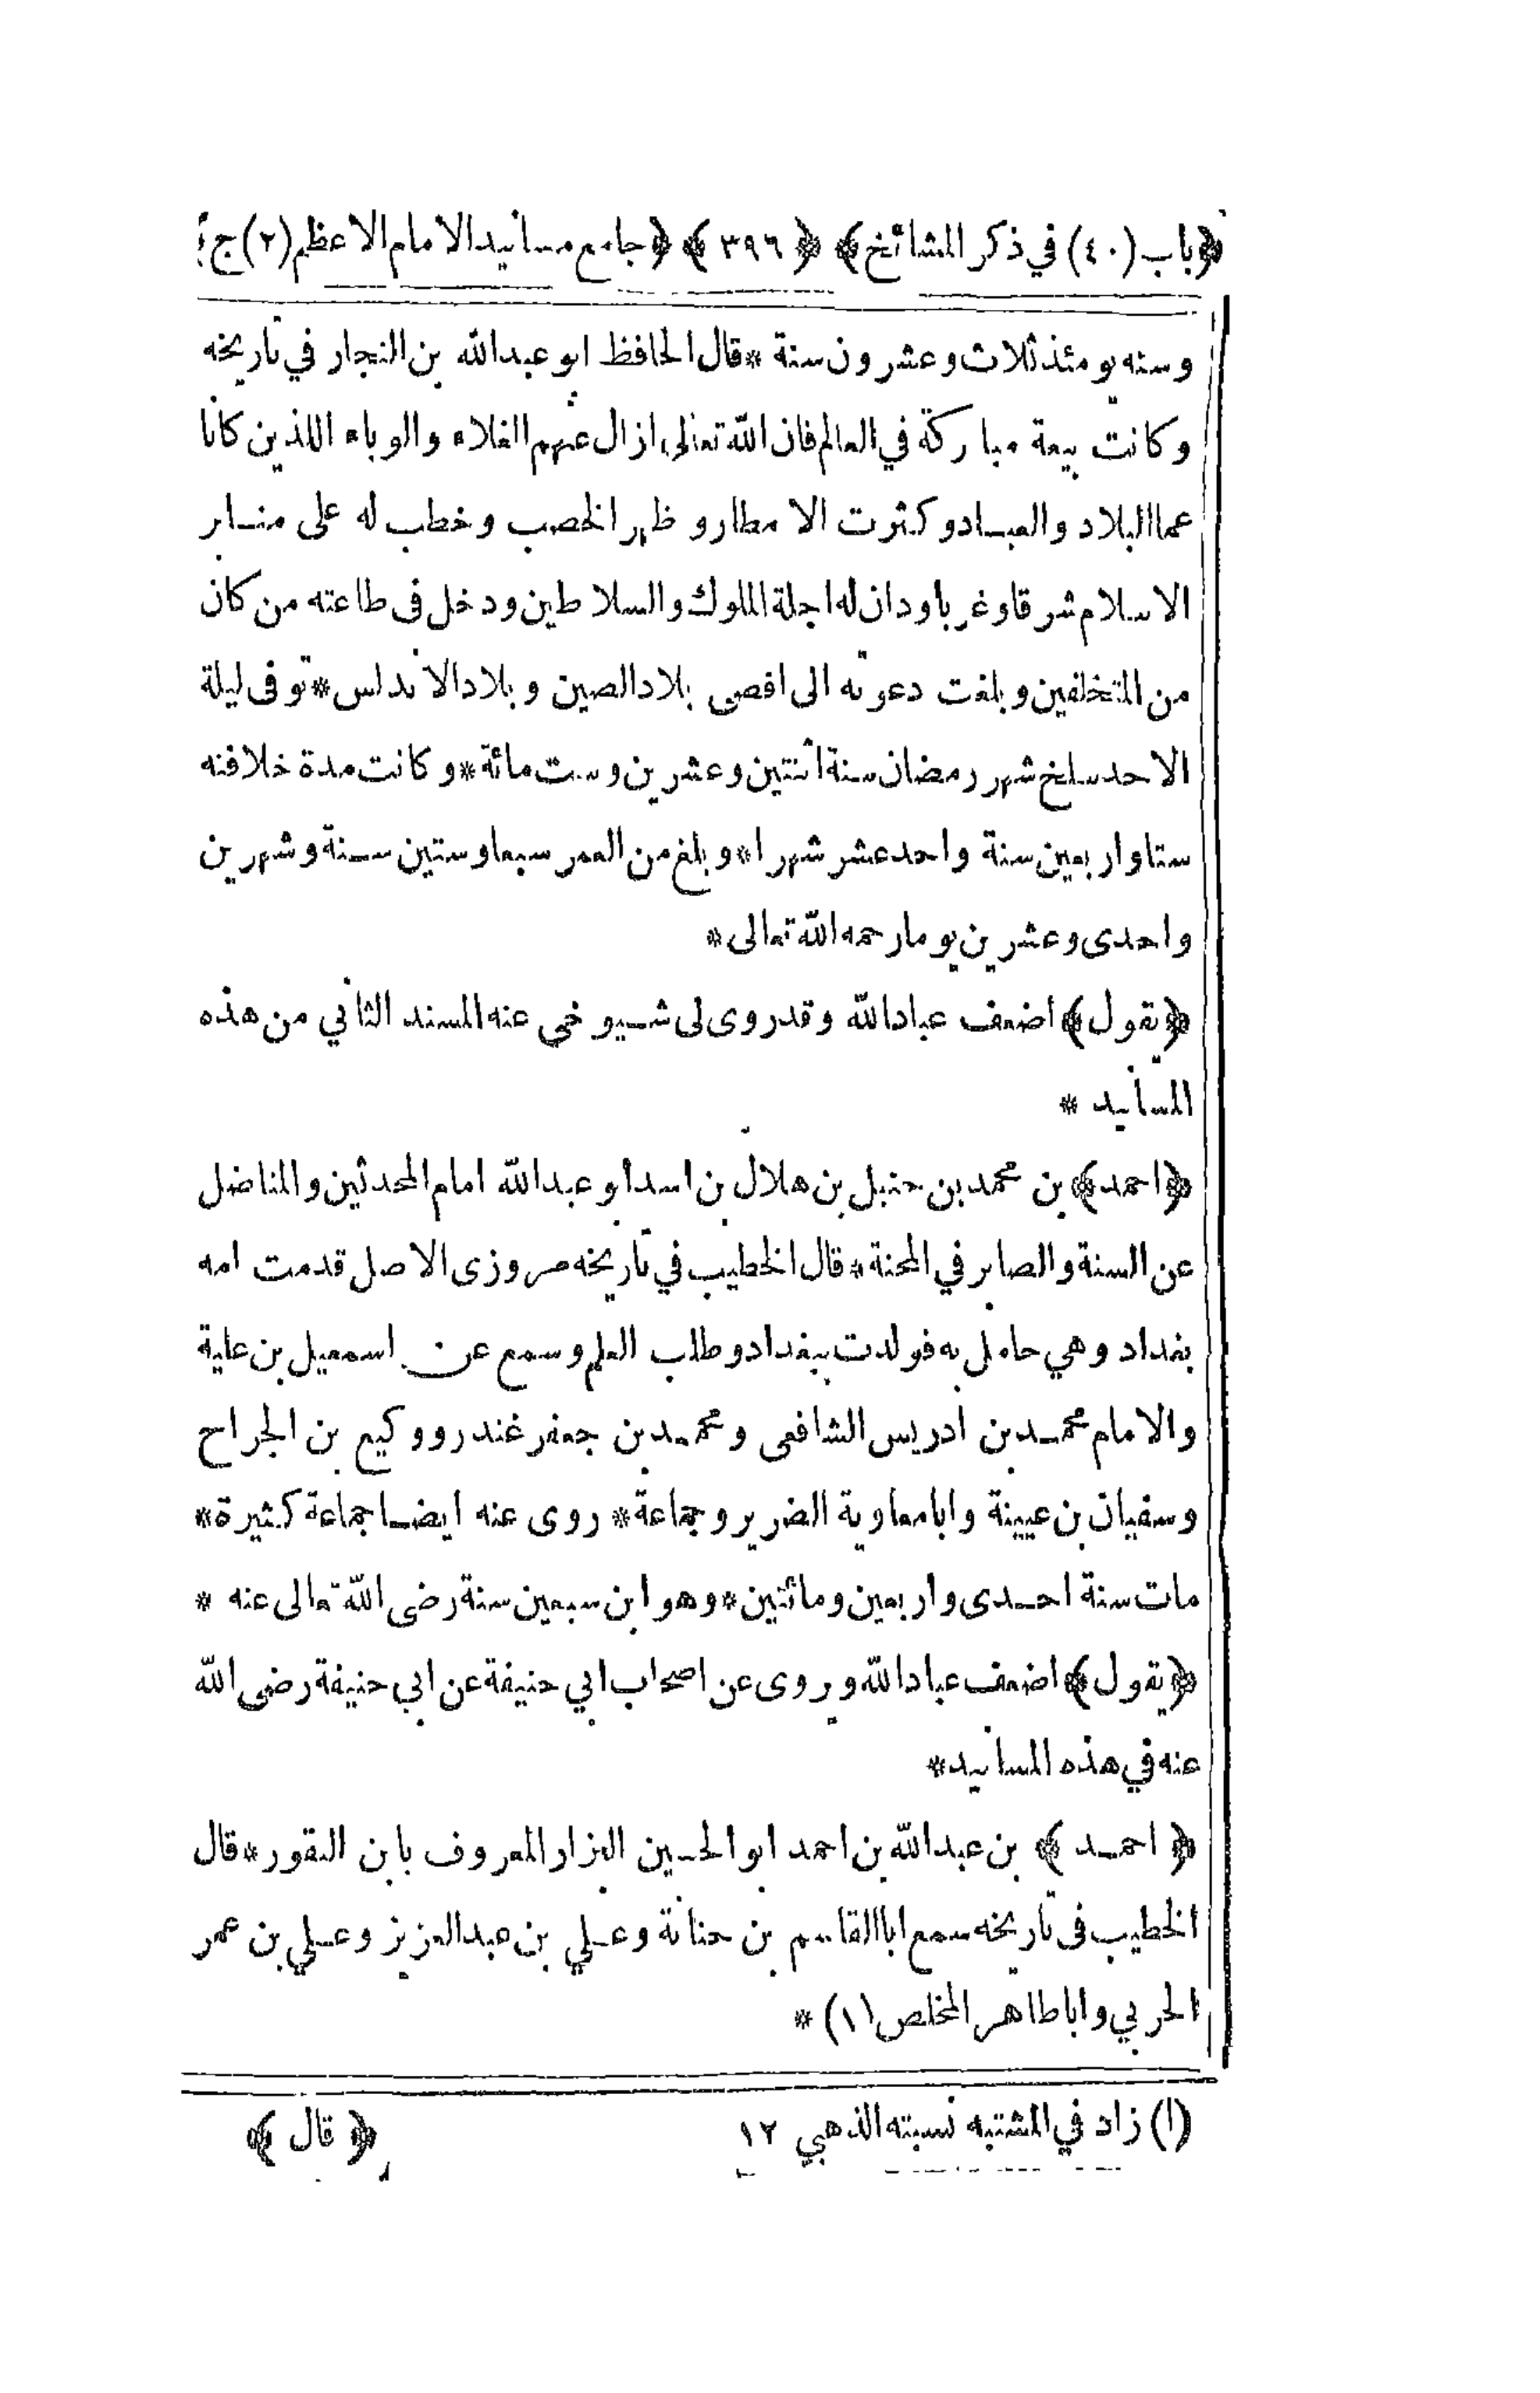 ﴿باب (٤٠) في ذكر المشائخ﴾ ﴿٣٩٦﴾ ﴿جامع مسانيد الامام الاعظم (٢) ج﴾
وسنه يومئذ ثلاث وعشرون سنة * قال الحافظ ابو عبدالله بن النجار في تاريخه
وكانت بيعة مباركة في العالم فان الله تعالى ازال عنهم الغلاء والوباء اللذين كانا
عما البلاد والعباد وكثرت الامطار و ظهر الخصب وخطب له على منابر
الاسلام شرقا وغربا ودان له اجلة الملوك والسلاطين ودخل فى طاعته من كان
من المتخلفين وبلغت دعوته الى اقصى بلاد الصين وبلاد الاندلس * توفى ليلة
الاحد سلخ شهر رمضان سنة اثنتين وعشرين وست مائة * وكانت مدة خلافته
ستا واربعين سنة واحد عشر شهرا * وبلغ من العمر سبعا وستين سنة وشهرين
واحدى وعشرين يوما رحمه الله تعالى *
﴿يقول﴾ اضعف عباد الله وقد روى لى شيوخى عنه المسند الثاني من هذه
المسانيد *
﴿احمد﴾ بن محمد بن حنبل بن هلال بن اسد ابو عبدالله امام المحدثين والمناضل
عن السنة والصابر في المحنة * قال الخطيب في تاريخه مروزى الاصل قدمت امه
بغداد وهي حامل به فولدت ببغداد وطلب العلم وسمع عن اسمعيل بن علية
والامام محمد بن ادريس الشافعى ومحمد بن جعفر غندر ووكيع بن الجراح
وسفيان بن عيينة وابا معاوية الضرير وجماعة * روى عنه ايضا جماعة كثيرة *
مات سنة احدى واربعين ومائتين * وهو ابن سبعين سنة رضى الله تعالى عنه *
﴿يقول﴾ اضعف عباد الله ويروى عن اصحاب ابي حنيفة عن ابي حنيفة رضى الله
عنه في هذه المسانيد *
﴿احمد﴾ بن عبدالله بن احمد ابو الحسين البزار المعروف بابن النقور * قال
الخطيب فى تاريخه سمع ابا القاسم بن حنانة وعلي بن عبدالعزيز وعلي بن عمر
الحربي وابا طاهر المخلص (١) *
(١) زاد في المشتبه نسبته الذهبي ١٢
﴿قال﴾